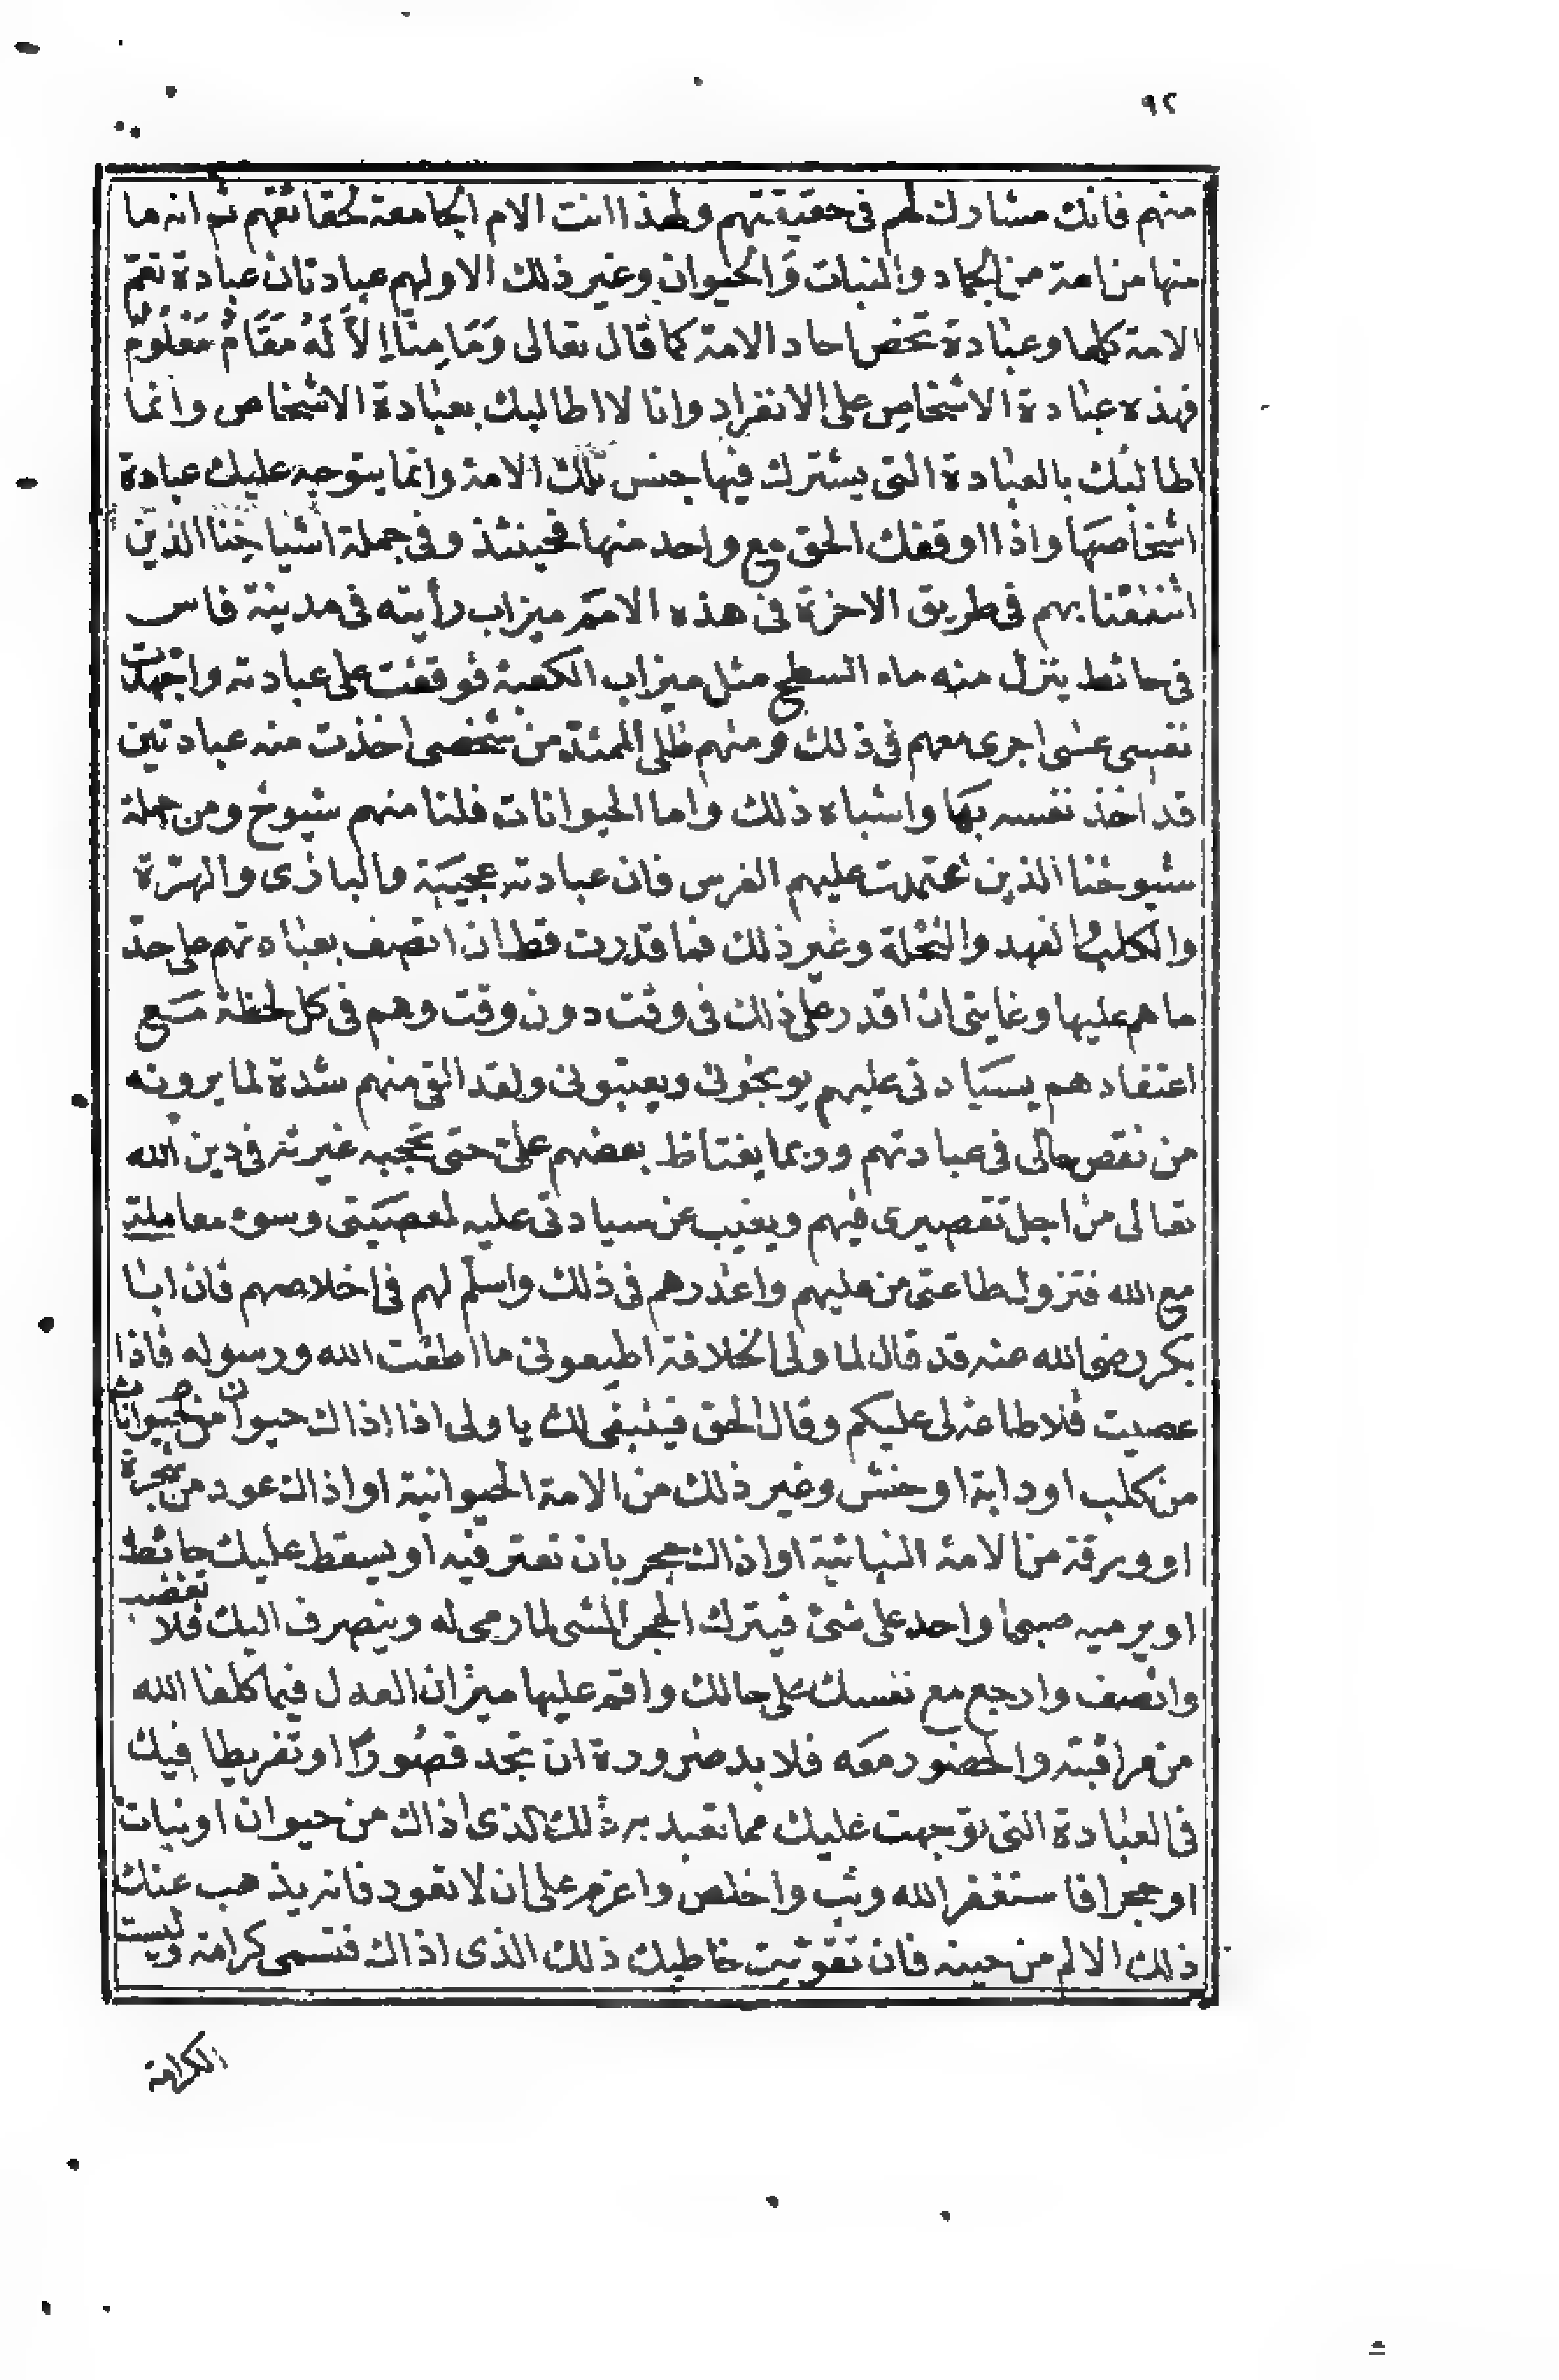 ٩٢
منهم فانك مشارك لهم في حقيقتهم ولهذا انت الام الجامعة لحقائقهم ثم انه ما
منها من امة من الجماد والنبات والحيوان وغير ذلك الا ولهم عبادتان عبادة تعم
الامة كلها وعبادة تخص احاد الامة كما قال تعالى وَمَا مِنَّا إِلاَّ لَهُ مَقَامٌ مَعْلُومٌ
فهذه عبادة الاشخاص على الانفراد وانا لا اطالبك بعبادة الاشخاص وانما
اطالبك بالعبادة التي يشترك فيها جنس تلك الامة وانما يتوجه عليك عبادة
اشخاصها واذا اوقفك الحق مع واحد منها فحينئذ وفي جملة اشياخنا الذين
انتفعنا بهم في طريق الاخرة في هذه الامم ميزاب رأيته في مدينة فاس
في حائط ينزل منه ماء السطح مثل ميزاب الكعبة فوقفت على عبادته واجهدت
نفسي عسى اجرى معهم في ذلك ومنهم ظلى الممتد من شخصى اخذت منه عبادتين
قد اخذ نفسه بها واشباه ذلك واما الحيوانات فلنا منهم شيوخ ومن جملة
شيوخنا الذين اعتمدت عليهم الفرس فان عبادته عجيبة والبازى والهرّة
والكلب والفهد والنحلة وغير ذلك فما قدرت قط ان اتصف بعبادتهم على حدّ
ما هم عليها وغايتى ان اقدر على ذلك في وقت دون وقت وهم في كل لحظة مع
اعتقادهم بسيادتى عليهم يوبخونى ويعتبونى ولقد القى منهم شدة لما يرونه
من نقص حالى في عبادتهم وربما يغتاظ بعضهم علىّ حتى تحجبه غيرته في دين الله
تعالى من اجل تقصيرى فيهم ويغيب عن سيادتى عليه لمعصيتى وسوء معاملتى
مع الله فتزول طاعتى من عليهم واعذرهم في ذلك واسلّم لهم في اخلاصهم فان ابا
بكر رضى الله عنه قد قال لما ولى الخلافة اطيعونى ما اطعت الله ورسوله فاذا
عصيت فلا طاعة لى عليكم وقال الحق فينبغى لك يا ولى اذا اذاك حيوان من الحيوانات
من كلب او دابة او حنش وغير ذلك من الامة الحيوانية او اذاك عود من شجرة
او ورقة من الامة النباتية او اذاك حجر بان تعثر فيه او يسقط عليك حائط
او يرميه صبى او احد على شئ فيترك الحجر المشى لما رمى له وينصرف اليك فلا تغضب
وانصف وارجع مع نفسك على حالك واقم عليها ميزان العدل فيما كلفنا الله
من مراقبته والحضور معه فلا بد ضرورة ان تجد قصورًا او تفريطا فيك
في العبادة التى توجهت عليك مما تعبد به ذلك الذى اذاك من حيوان او نبات
او حجر فاستغفر الله وتب واخلص واعزم على ان لا تعود فانه يذهب عنك
ذلك الالم من حينه فان تقويت خاطبك ذلك الذى اذاك فتسمى كرامة وليست
الكرامة